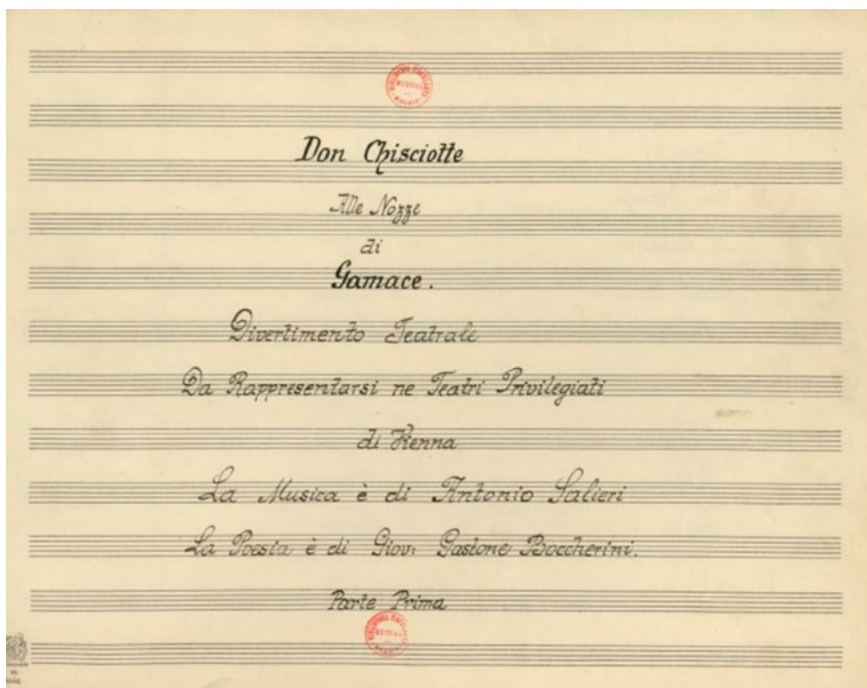 Don Chisciotte
Alle Nozze
di
Gamace.
Divertimento Teatrale
Da Rappresentarsi ne Teatri Privilegiati
di Vienna
La Musica è di Antonio Salieri
La Poesia è di Giov: Gastone Boccherini.
Parte Prima